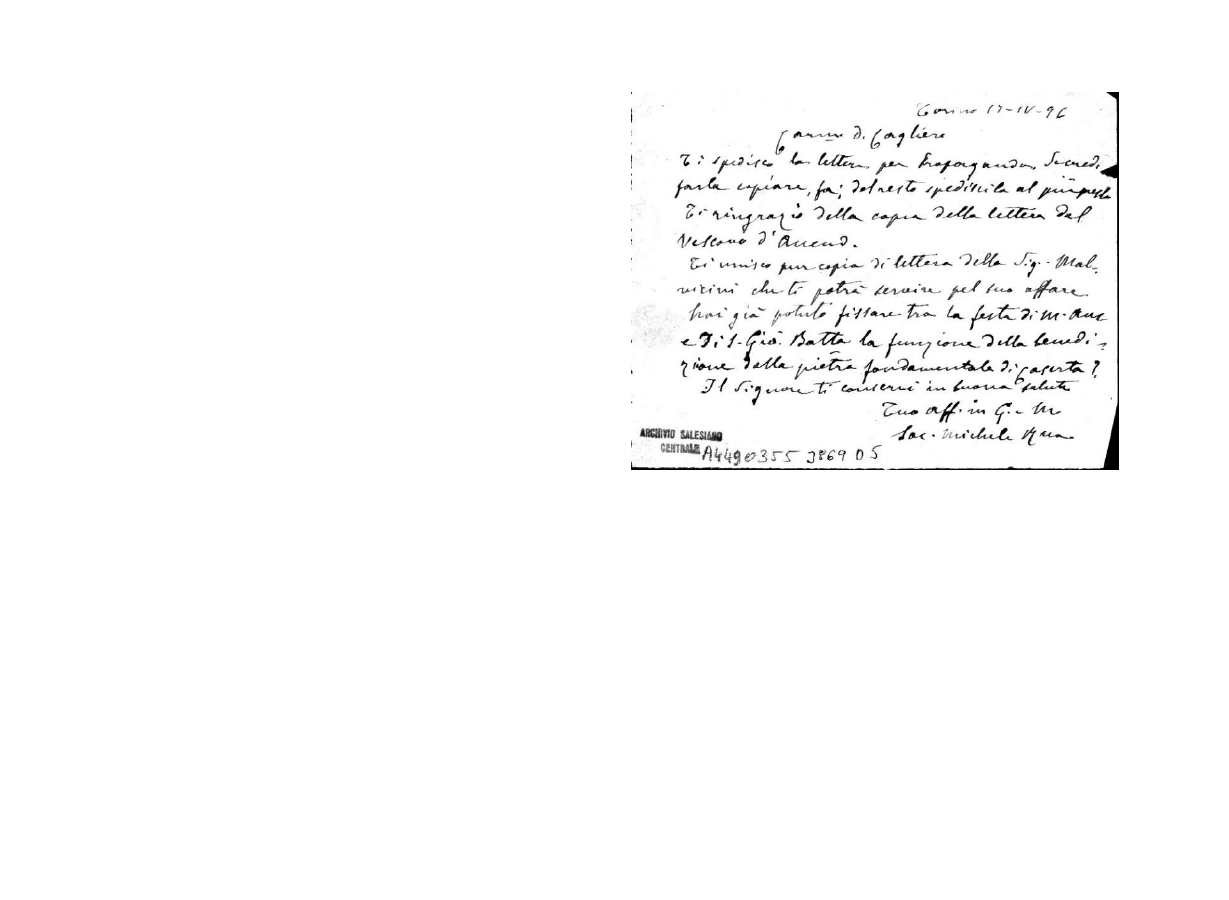 Torino 17-IV-96
Carmo D. Cagliero
Ti spedisco la lettera per Propaganda. Se credi
farla copiare, fa; del resto spediscila al più presto
Ti ringrazio della copia della lettera del
Vescovo d'
Ti unisco pur copia di lettera della Sig.- Mal-
vicini che ti potrà servire pel suo affare.
Hai già potuto fissare tra la festa di M. Aus
e di S. Gio. Batta la funzione della benedi-
zione della pietra fondamentale di Caserta?
Il Signore ti conservi in buona salute
Tuo aff. in G. e M.
Sac. Michele Rua
ARCHIVIO SALESIANO
CENTRALE A4490355 3869 D5